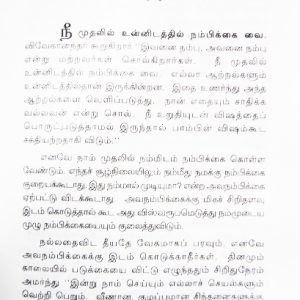 நீ முதலில் உன்னிடத்தில் நம்பிக்கை வை.
விவேகானந்தர் கூறுகிறார் "இவனை நம்பு, அவனை நம்பு
என்று மற்றவர்கள் சொல்கிறார்கள். நீ முதலில்
உன்னிடத்தில் நம்பிக்கை வை. எல்லா ஆற்றல்களும்
உன்னிடத்தில்தான் இருக்கின்றன. இதை உணர்ந்து அந்த
ஆற்றல்களை வெளிப்படுத்து. நான் எதையும் சாதிக்க
வல்லவன் என்று சொல். நீ உறுதியுடன் விஷத்தைப்
பொருட்படுத்தாமல் இருந்தால் பாம்பின் விஷம்கூட
சக்தியற்றதாகி விடும்".
எனவே நாம் முதலில் நம்மிடம் நம்பிக்கை கொள்ள
வேண்டும். எந்தச் சூழ்நிலையிலும் நம்மீது நமக்கு நம்பிக்கை
குறையக்கூடாது. இது நம்மால் முடியுமா? என்ற அவநம்பிக்கை
ஏற்பட்டு விடக்கூடாது. அவநம்பிக்கைக்கு மிகச் சிறிதளவு
இடம் கொடுத்தால் கூட அது விஸ்வரூபமெடுத்து நம்முடைய
முழு நம்பிக்கையையும் குலைத்துவிடும்.
நல்லதைவிட தீயதே வேகமாகப் பரவும். எனவே
அவநம்பிக்கைக்கு இடம் கொடுக்காதீர்கள். தினமும்
காலையில் படுக்கையை விட்டு எழுந்ததும் சிறிதுநேரம்
அமர்ந்து "இன்று நாம் செய்யும் எல்லாச் செயல்களும்
வெற்றி பெறும். வீணான, குழப்பமான சிந்தனைகளுக்கு